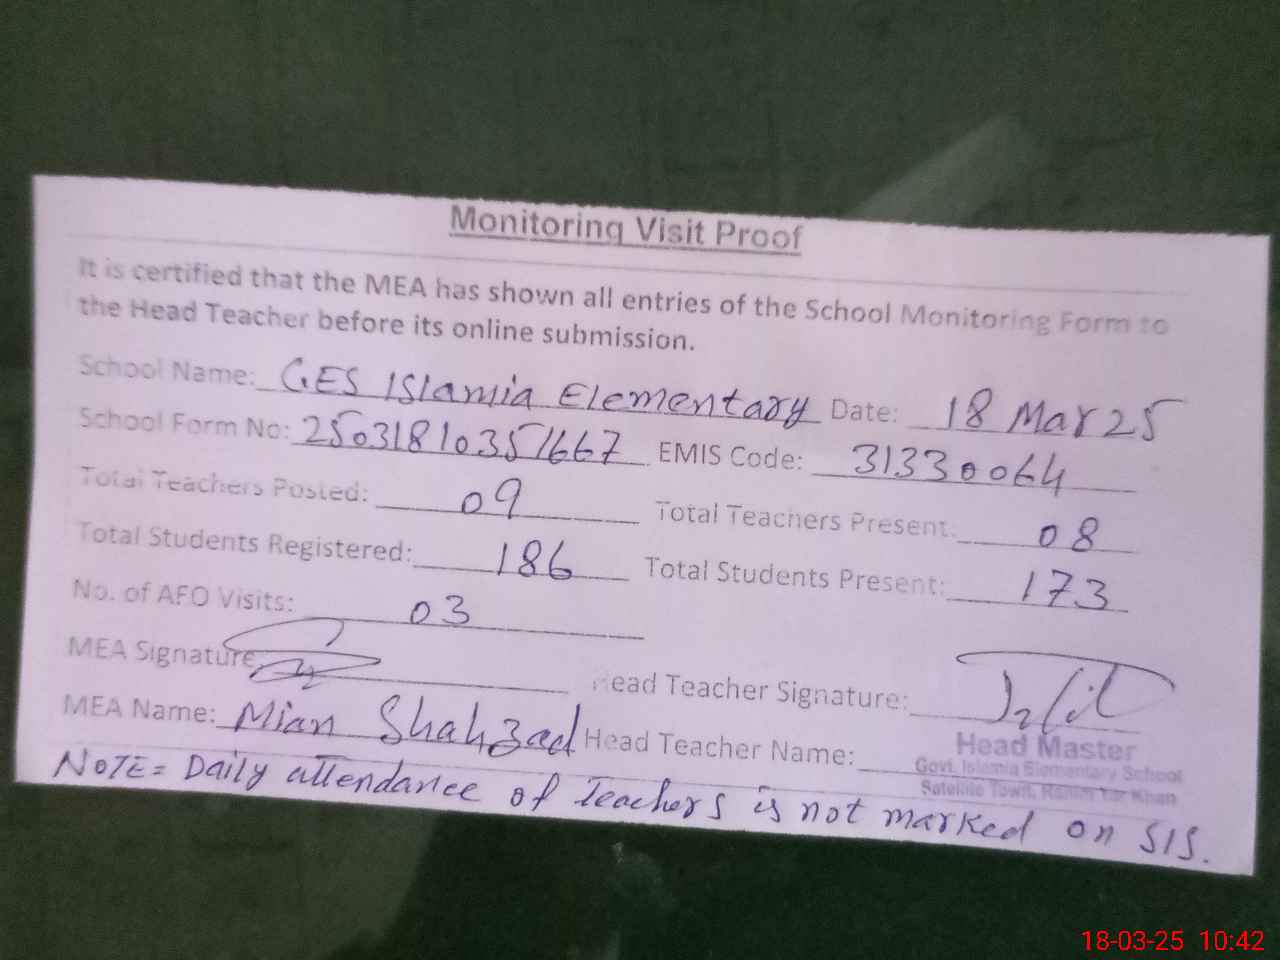 Monitoring Visit Proof
It is certified that the MEA has shown all entries of the School Monitoring Form to
the Head Teacher before its online submission.
School Name: GES Islamia Elementary Date: 18 Mar 25
School Form No: 25031810351667 EMIS Code: 31330064
Total Teachers Posted: 09 Total Teachers Present: 08
Total Students Registered: 186 Total Students Present: 173
No. of AEO Visits: 03
MEA Signature Head Teacher Signature:
MEA Name: Mian Shahzad Head Teacher Name:
Head Master
Govt. Islamia Elementary School
Satellite Town, Rahim Yar Khan
NOTE = Daily attendance of Teachers is not marked on SIS.
18-03-25 10:42